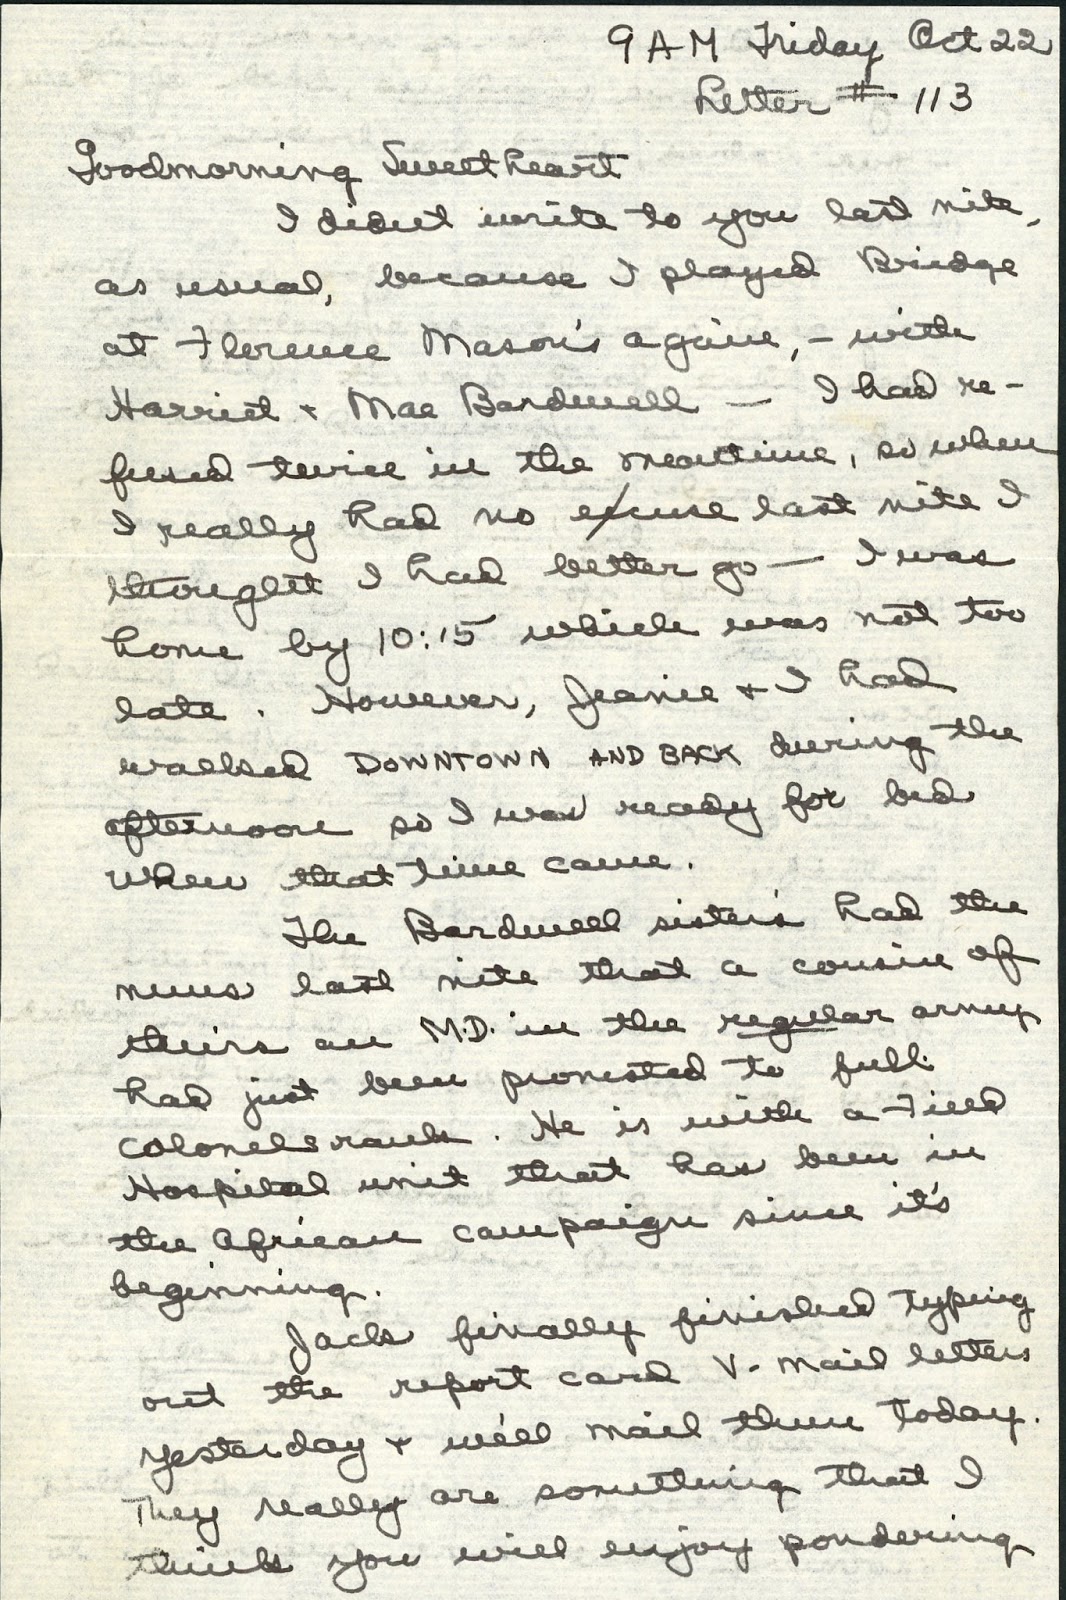 9 AM Friday Oct 22
Letter # 113
Goodmorning Sweetheart
I didn't write to you last nite,
as usual, because I played Bridge
at Florence Mason's again, - with
Harriet & Mae Bardwell — I had re-
fused twice in the meantime, so when
I really had no excuse last nite I
thought I had better go — I was
home by 10:15 which was not too
late. However, Jeanie & I had
walked DOWNTOWN AND BACK during the
afternoon so I was ready for bed
when that time came.
The Bardwell sister's had the
news last nite that a cousin of
theirs an M.D. in the regular army
had just been promoted to full
colonels rank. He is with a Field
Hospital unit that has been in
the African campaign since it's
beginning.
Jack finally finished typing
out the report card V-mail letters
yesterday & we'll mail them today.
They really are something that I
think you will enjoy pondering